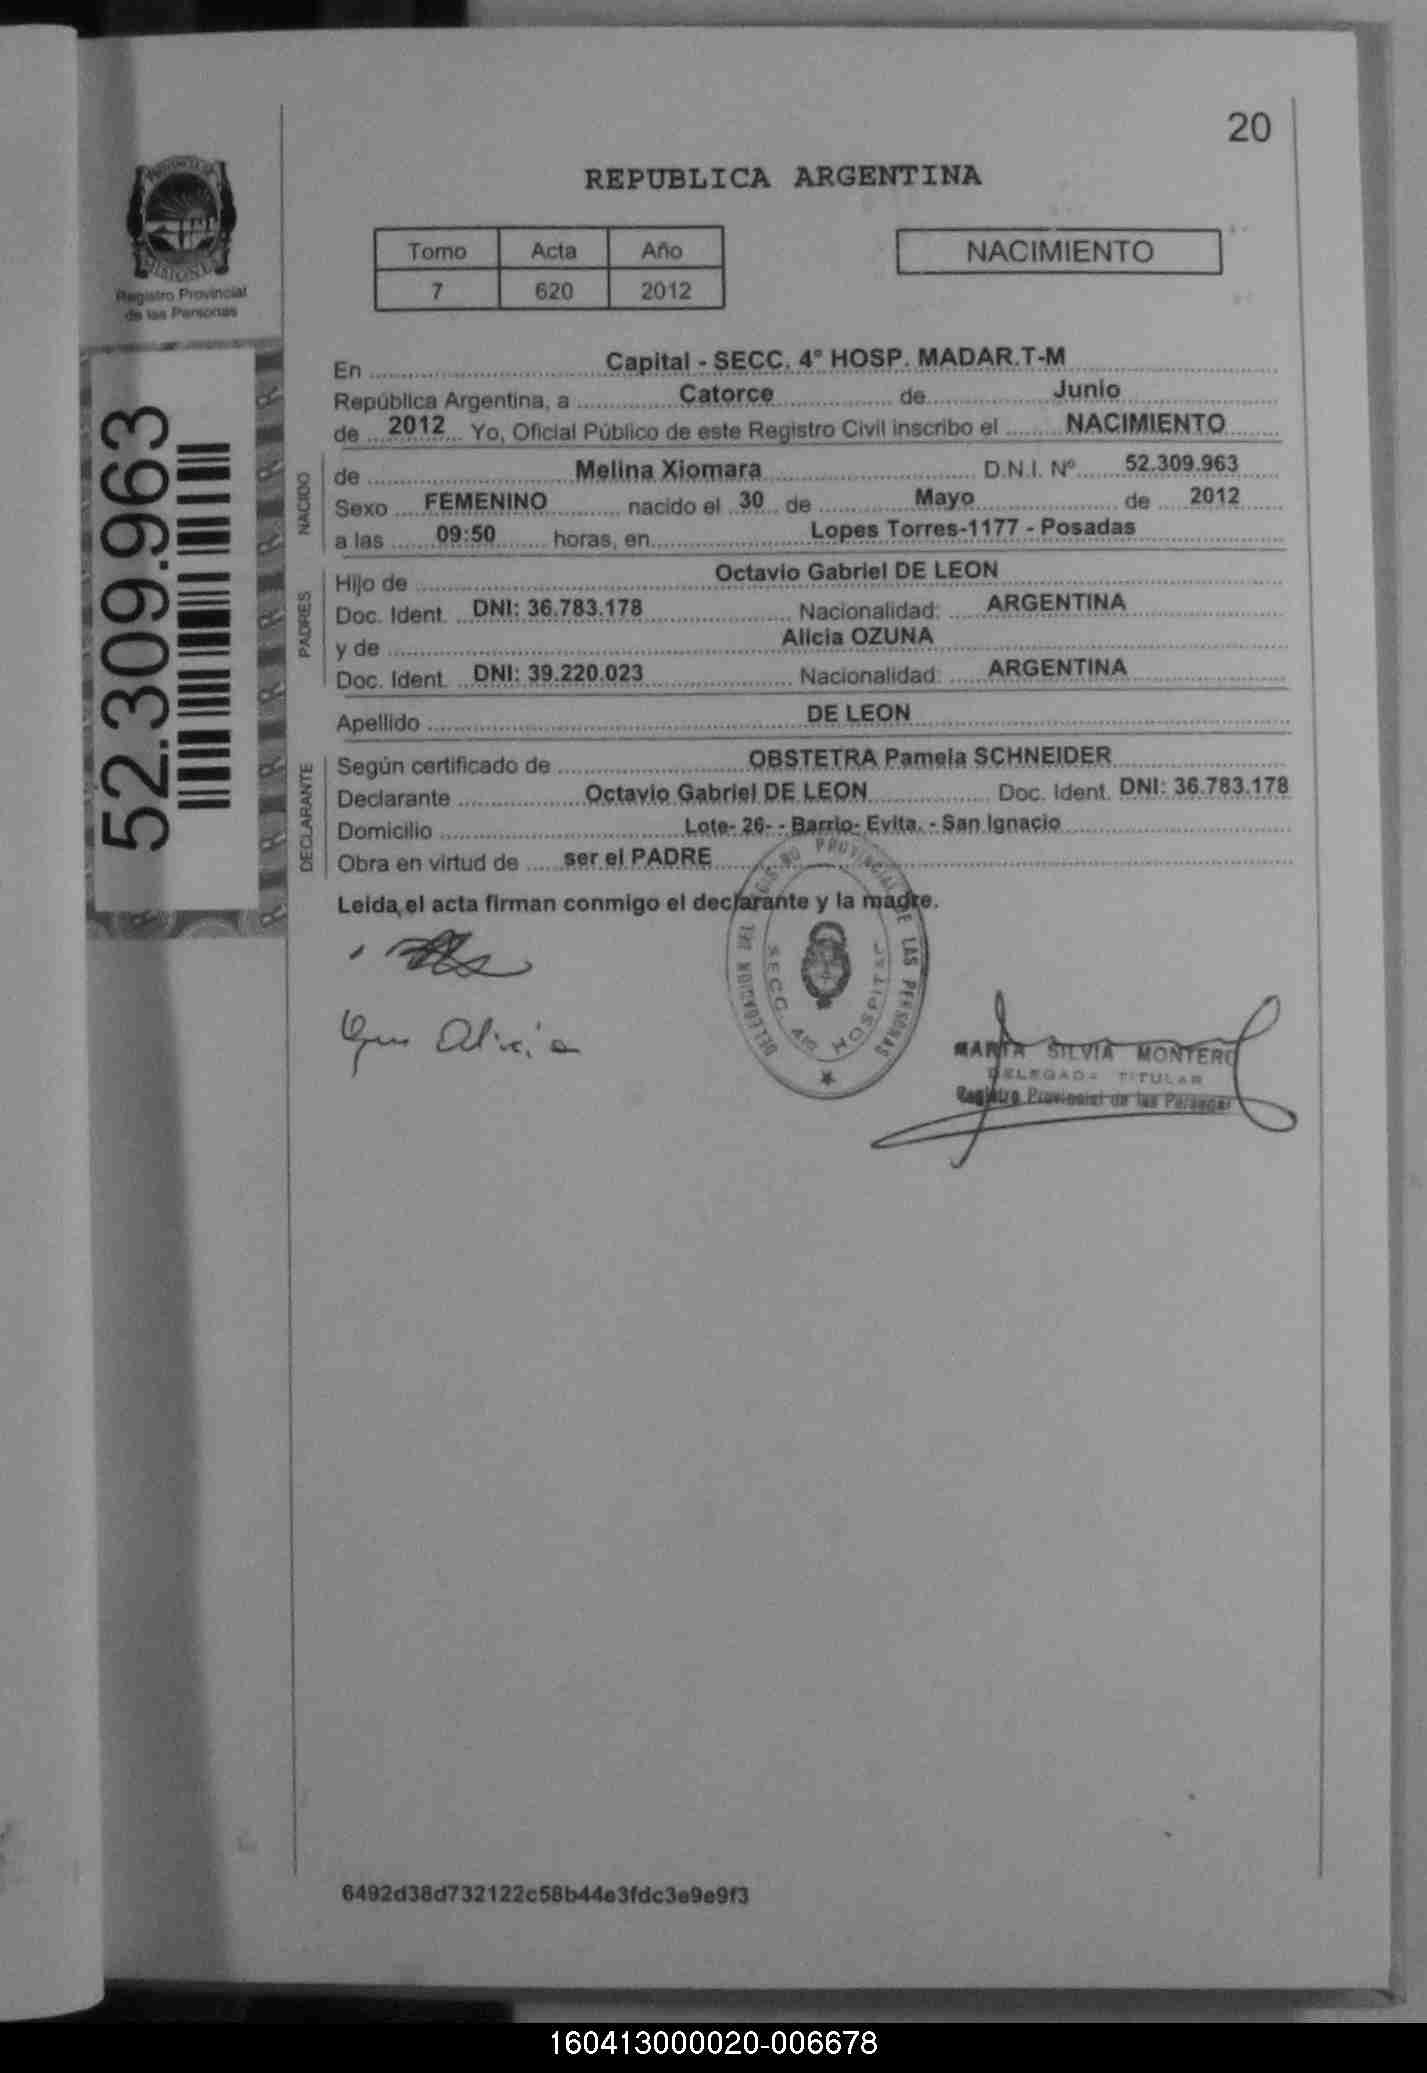 20
PROVINCIA DE
MISIONES
Registro Provincial
de las Personas
REPUBLICA ARGENTINA
Tomo Acta Año
7 620 2012
NACIMIENTO
52.309.963
En Capital - SECC. 4° HOSP. MADAR.T-M
República Argentina, a Catorce de Junio
de 2012 Yo, Oficial Público de este Registro Civil inscribo el NACIMIENTO
NACIDO
de Melina Xiomara D.N.I. Nº 52.309.963
Sexo FEMENINO nacido el 30 de Mayo de 2012
a las 09:50 horas, en Lopes Torres-1177 - Posadas
PADRES
Hijo de Octavio Gabriel DE LEON
Doc. Ident. DNI: 36.783.178 Nacionalidad: ARGENTINA
y de Alicia OZUNA
Doc. Ident. DNI: 39.220.023 Nacionalidad: ARGENTINA
Apellido DE LEON
DECLARANTE
Según certificado de OBSTETRA Pamela SCHNEIDER
Declarante Octavio Gabriel DE LEON Doc. Ident. DNI: 36.783.178
Domicilio Lote- 26- - Barrio- Evita. - San Ignacio
Obra en virtud de ser el PADRE
Leida,el acta firman conmigo el declarante y la madre.
DELEGACION DEL REGISTRO PROVINCIAL DE LAS PERSONAS
SECC. 4ta HOSPITAL
Alicia
MARTA SILVIA MONTERO
DELEGADA TITULAR
Registro Provincial de las Personas
6492d38d732122c58b44e3fdc3e9e9f3
160413000020-006678